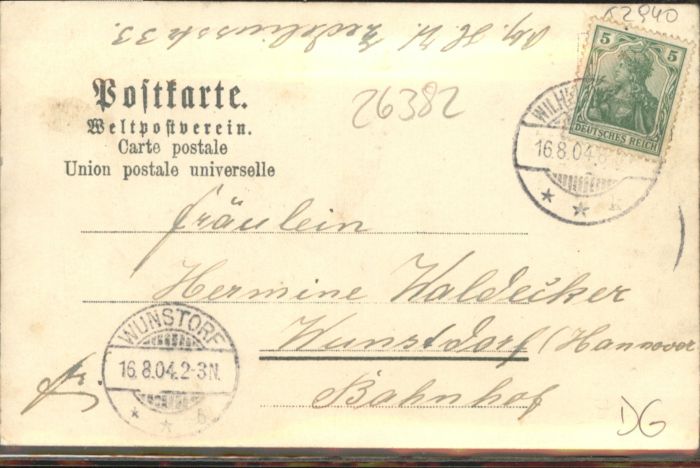 52940
5 5
DEUTSCHES REICH
33
Postkarte.
Weltpostverein.
Carte postale
Union postale universelle
26382
WILH
16.8.04.
K
Fräulein
Hermine Waldecker
Wunstdorf (Hannover
Bahnhof
WUNSTORF
16.8.04.2-3N.
b.
DG